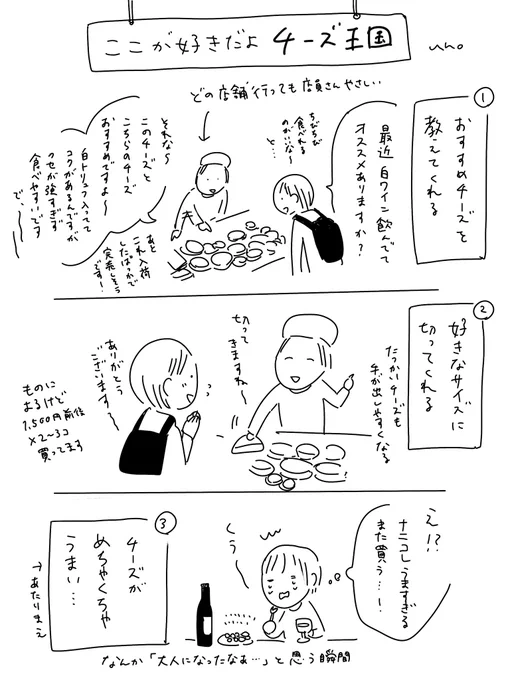 ここが好きだよ チーズ王国
uno
どの店舗行っても店員さんやさしい…
①
おすすめチーズを
教えてくれる
ちびちび
食べれる
のがいいな〜
と…
最近白ワイン飲んでて
オススメありますか?
それなら
このチーズと
こちらのチーズ
おすすめですよ〜
白トリュフ入ってて
コクがあるんですが
クセが強すぎず
食べやすいです
で〜
あと
これ入荷
したばっかで
完売しそう
です!
②
好きなサイズに
切ってくれる
たっかいチーズも
手が出しやすくなる
切って
きますね〜
ありがとう
ございます〜
ものに
よるけど
1,500円前後
×2〜3コ
買ってます
③
チーズが
めちゃくちゃ
うまい…
→あたりまえ
え!?
ナニコレうますぎる
また買う…!
くぅ〜
なんか「大人になったなぁ…」と思う瞬間